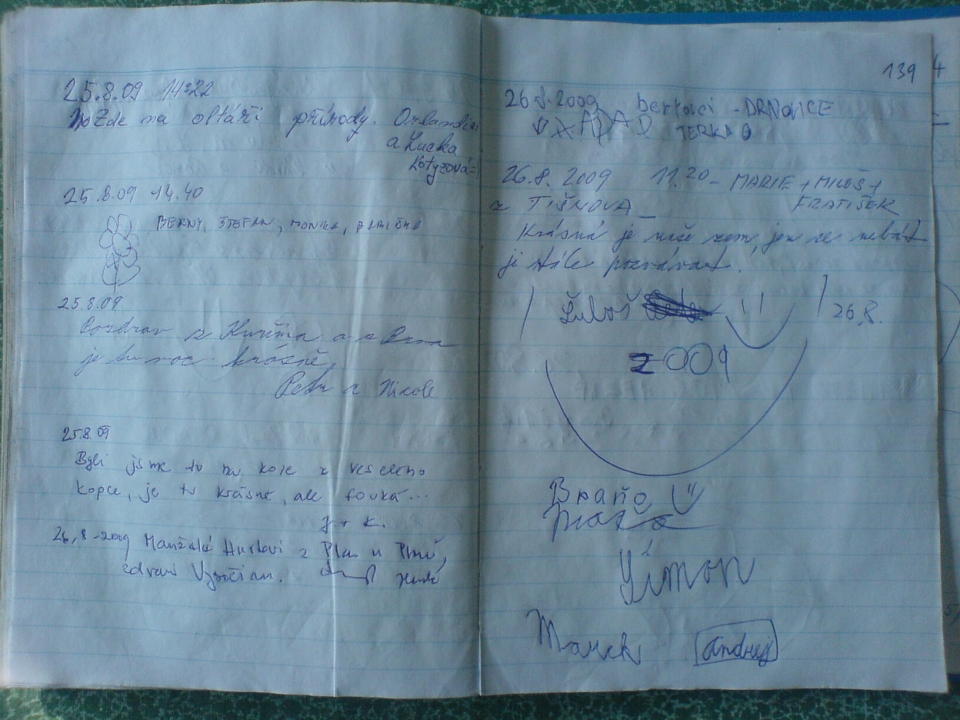 25.8.09 14:22
Zde na oltáři přírody.
a Lucka
Kotyzová
25.8.09 14.40
BERNY, ŠTEFAN, MONIKA,
25.8.09
Pozdrav z Kuřima a z Brna
je tu moc krásně,
Petr a Nikole
25.8.09
Byli jsme tu na kole z veselého
kopce, je tu krásně, ale fouká...
J + K.
26.8.2009 Manželé z Plas u Plzně,
zdraví Vysočinu.
139
26.8.2009 - DRNOVICE
TERKA
26.8.2009 11.20 - MARIE + MILOŠ +
z TIŠNOVA FRATIŠEK
Krásná je naše zem, jen se nebát
ji stále poznávat.
Luboš 26.8.
2009
Braňo
Šimon
Marek Andrej